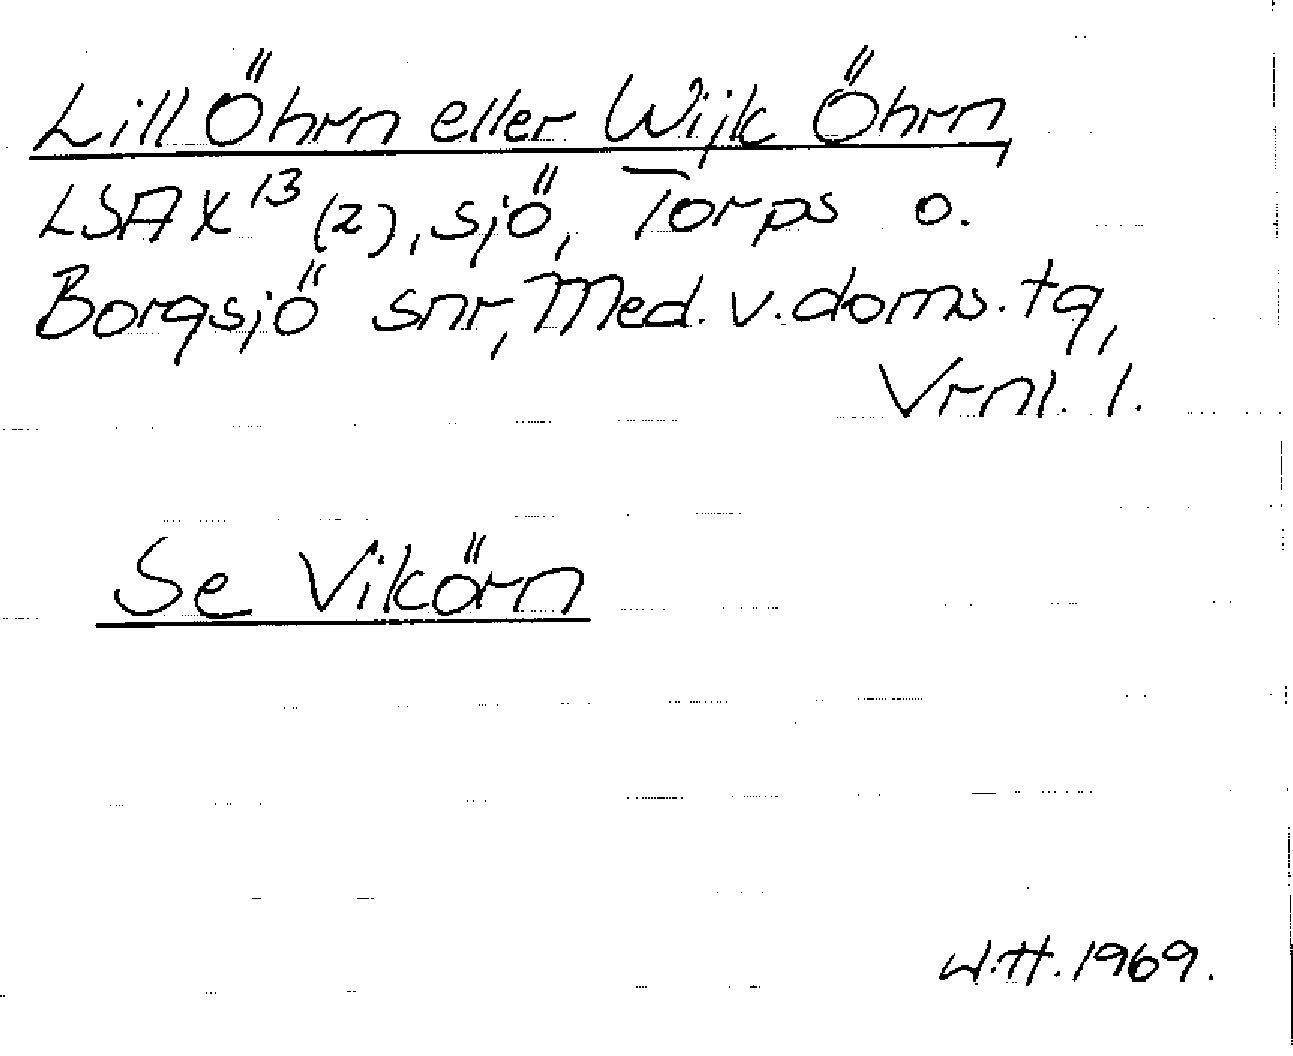 Lill Öhrn eller Wijk Öhrn,
LSA X¹³ (2), sjö, Torps o.
Borgsjö snr, Med. v. doms. tg,
Vrnl. l.
Se Vikörn
W.H. 1969.